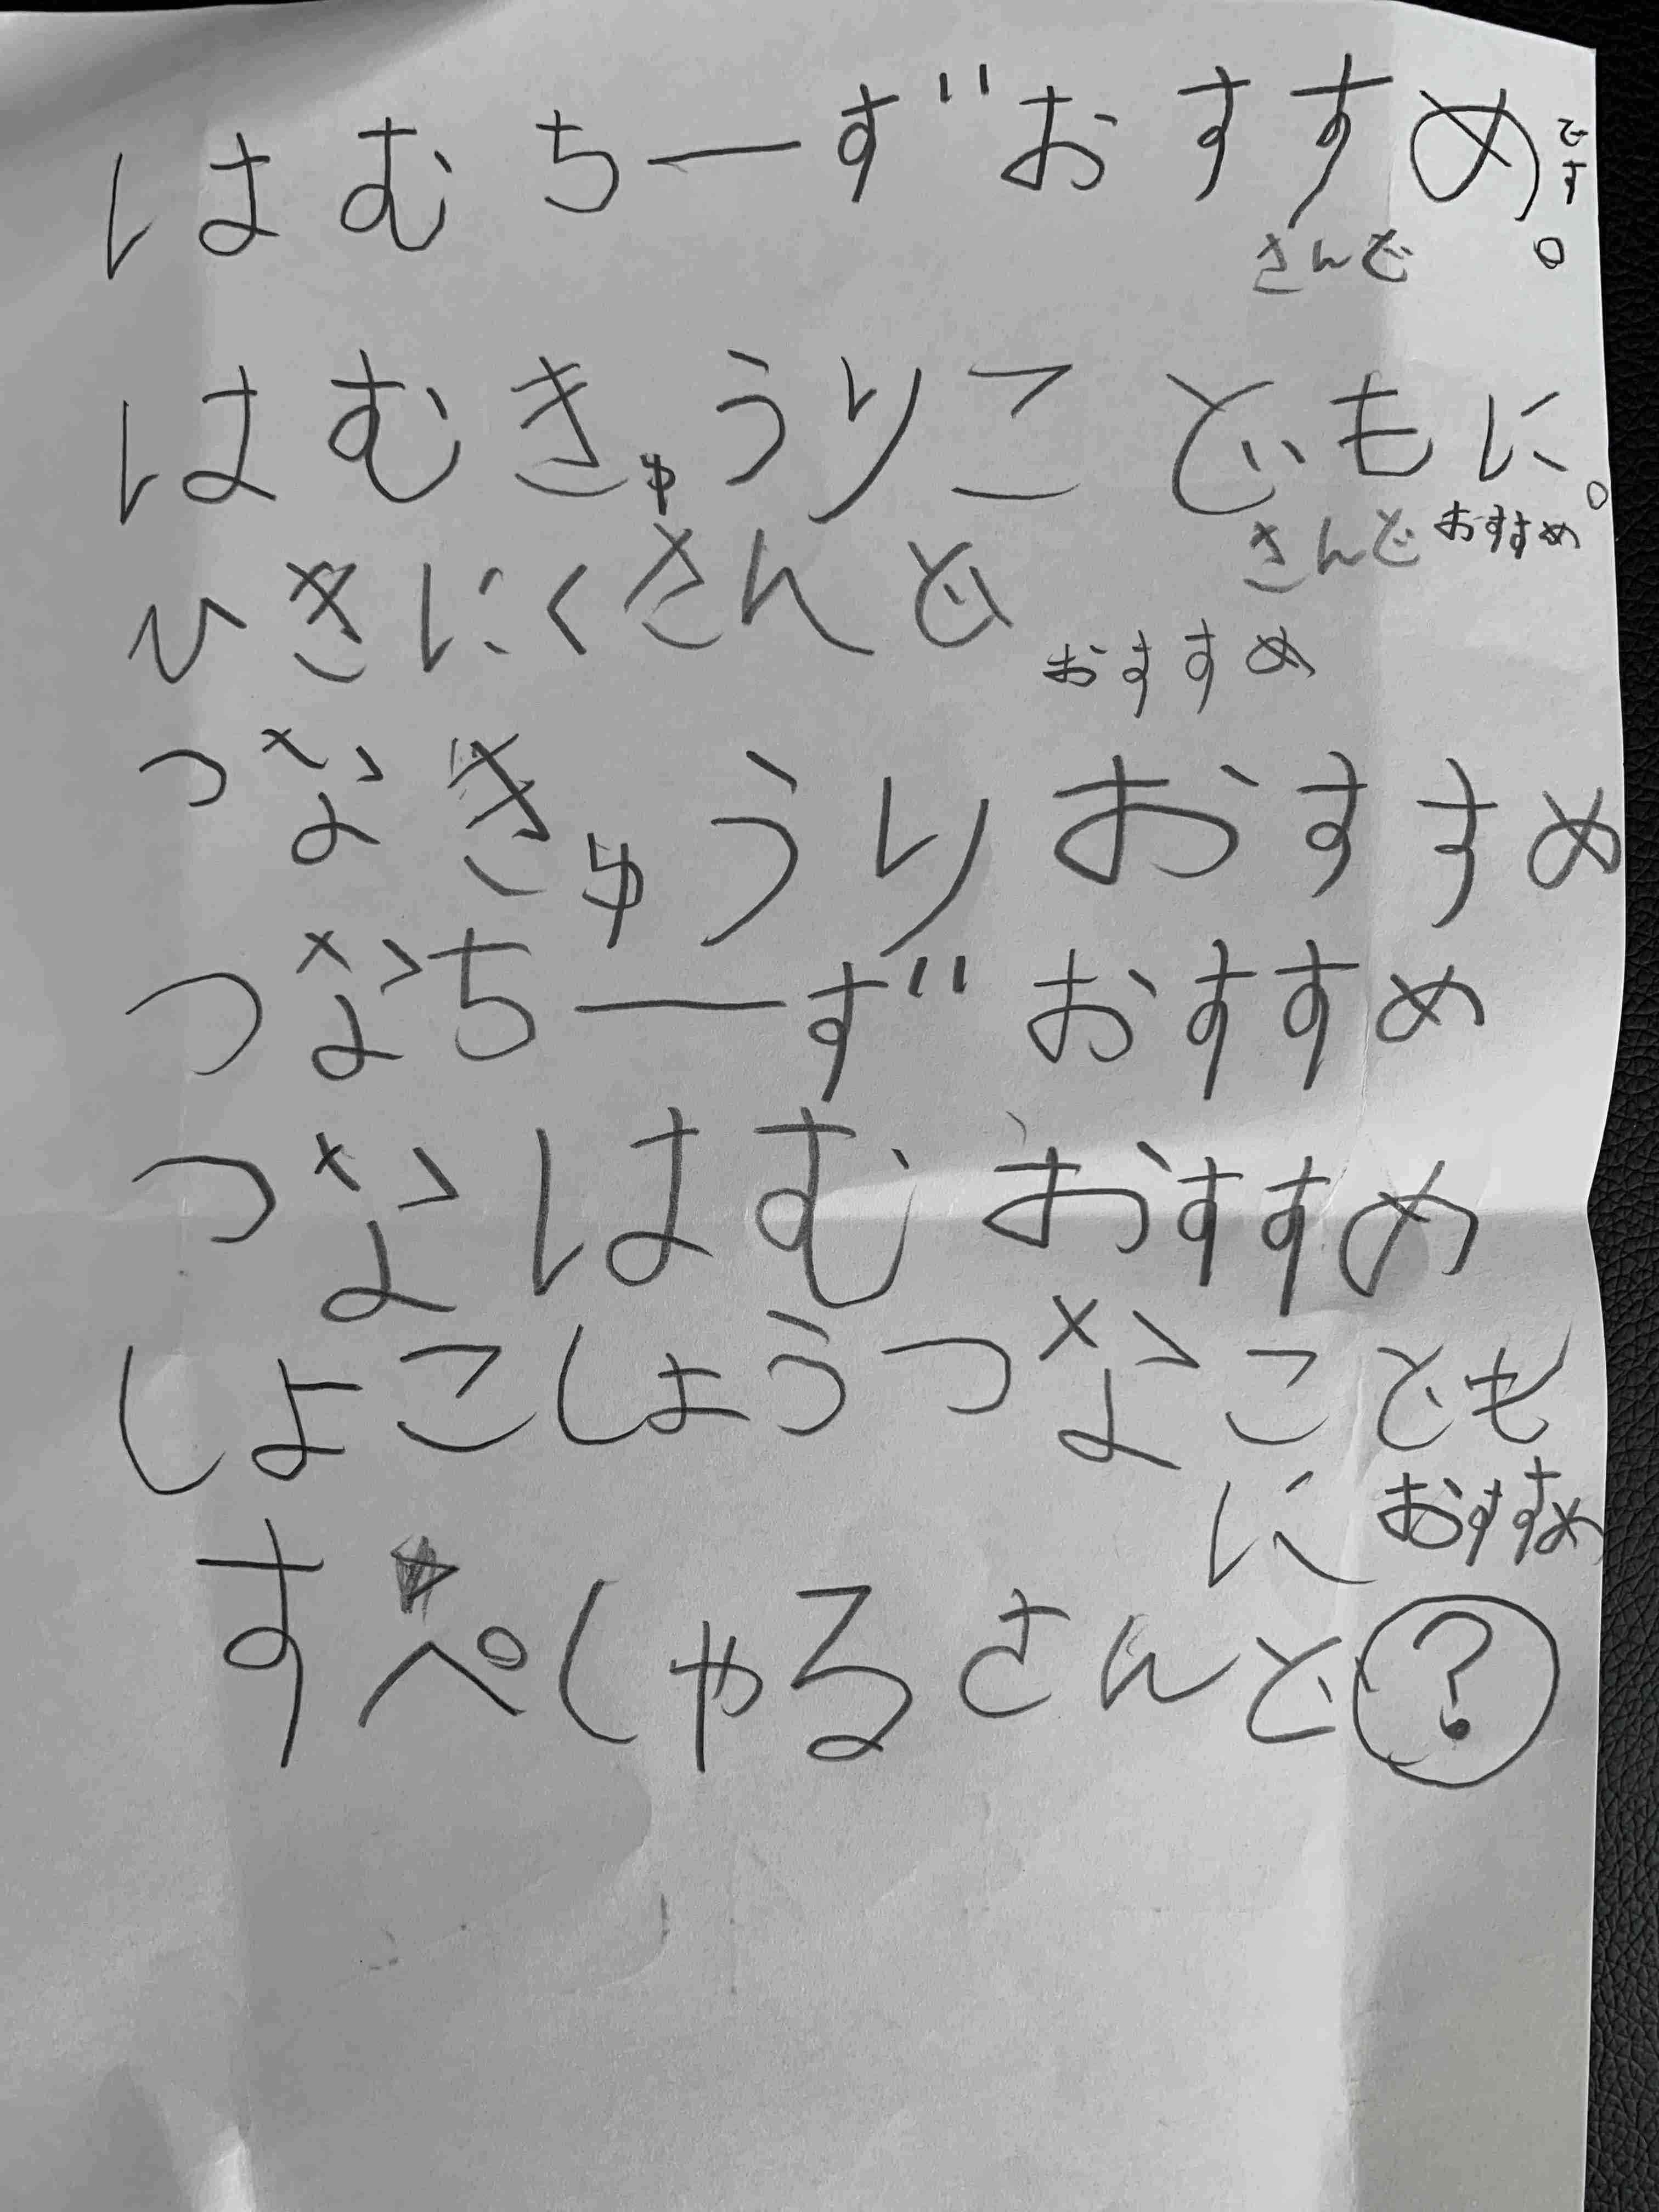 はむちーずおすすめです。
さんど
はむきゅうりこどもに。
さんどおすすめ
ひきにくさんど
おすすめ
つなきゅうりおすすめ
つなちーずおすすめ
つなはむおすすめ
しよこしょうつなこども
におすすめ
すぺしゃるさんど?